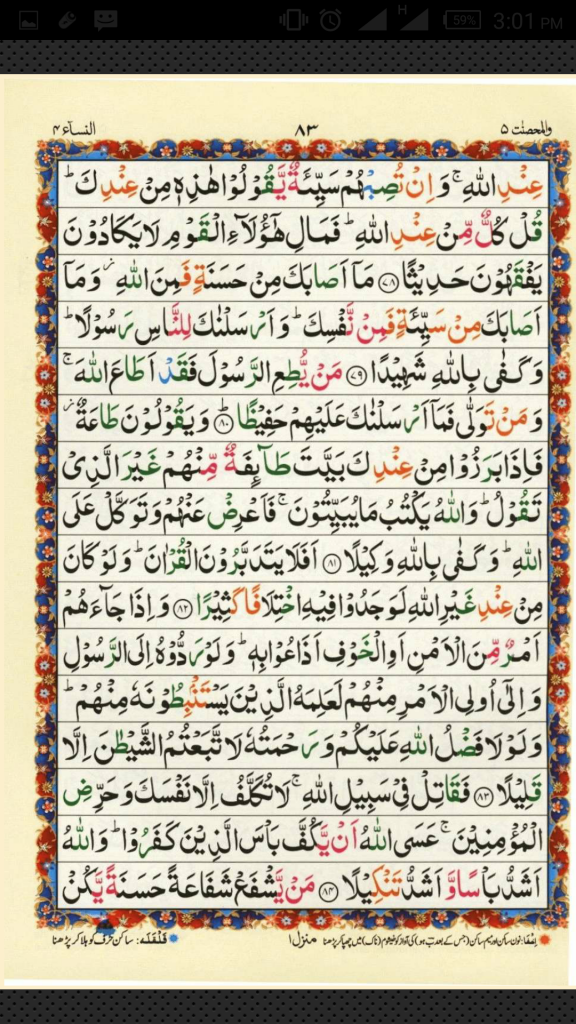 H 59% 3:01 PM
والمحصنٰت ۵ ۸۳ النسآء ۴
عِنْدِ اللّٰهِ ۚ وَ اِنْ تُصِبْهُمْ سَیِّئَةٌ یَّقُوْلُوْا هٰذِهٖ مِنْ عِنْدِكَ ؕ
قُلْ كُلٌّ مِّنْ عِنْدِ اللّٰهِ ؕ فَمَالِ هٰۤؤُلَآءِ الْقَوْمِ لَا یَكَادُوْنَ
یَفْقَهُوْنَ حَدِیْثًا ﴿۷۸﴾ مَاۤ اَصَابَكَ مِنْ حَسَنَةٍ فَمِنَ اللّٰهِ ؗ وَ مَاۤ
اَصَابَكَ مِنْ سَیِّئَةٍ فَمِنْ نَّفْسِكَ ؕ وَ اَرْسَلْنٰكَ لِلنَّاسِ رَسُوْلًا ؕ
وَ كَفٰی بِاللّٰهِ شَهِیْدًا ﴿۷۹﴾ مَنْ یُّطِعِ الرَّسُوْلَ فَقَدْ اَطَاعَ اللّٰهَ ۚ
وَ مَنْ تَوَلّٰی فَمَاۤ اَرْسَلْنٰكَ عَلَیْهِمْ حَفِیْظًا ﴿ؕ۸۰﴾ وَ یَقُوْلُوْنَ طَاعَةٌ ؗ
فَاِذَا بَرَزُوْا مِنْ عِنْدِكَ بَیَّتَ طَآىِٕفَةٌ مِّنْهُمْ غَیْرَ الَّذِیْ
تَقُوْلُ ؕ وَ اللّٰهُ یَكْتُبُ مَا یُبَیِّتُوْنَ ۚ فَاَعْرِضْ عَنْهُمْ وَ تَوَكَّلْ عَلَی
اللّٰهِ ؕ وَ كَفٰی بِاللّٰهِ وَكِیْلًا ﴿۸۱﴾ اَفَلَا یَتَدَبَّرُوْنَ الْقُرْاٰنَ ؕ وَ لَوْ كَانَ
مِنْ عِنْدِ غَیْرِ اللّٰهِ لَوَجَدُوْا فِیْهِ اخْتِلَافًا كَثِیْرًا ﴿۸۲﴾ وَ اِذَا جَآءَهُمْ
اَمْرٌ مِّنَ الْاَمْنِ اَوِ الْخَوْفِ اَذَاعُوْا بِهٖ ؕ وَ لَوْ رَدُّوْهُ اِلَی الرَّسُوْلِ
وَ اِلٰۤی اُولِی الْاَمْرِ مِنْهُمْ لَعَلِمَهُ الَّذِیْنَ یَسْتَنْۢبِطُوْنَهٗ مِنْهُمْ ؕ
وَ لَوْ لَا فَضْلُ اللّٰهِ عَلَیْكُمْ وَ رَحْمَتُهٗ لَاتَّبَعْتُمُ الشَّیْطٰنَ اِلَّا
قَلِیْلًا ﴿۸۳﴾ فَقَاتِلْ فِیْ سَبِیْلِ اللّٰهِ ۚ لَا تُكَلَّفُ اِلَّا نَفْسَكَ وَ حَرِّضِ
الْمُؤْمِنِیْنَ ۚ عَسَی اللّٰهُ اَنْ یَّكُفَّ بَاْسَ الَّذِیْنَ كَفَرُوْا ؕ وَ اللّٰهُ
اَشَدُّ بَاْسًا وَّ اَشَدُّ تَنْكِیْلًا ﴿۸۴﴾ مَنْ یَّشْفَعْ شَفَاعَةً حَسَنَةً یَّكُنْ
اِخفا: نون ساکن اور میم ساکن (جس کے بعد ب ہو) کی آواز کو خیشوم (ناک) میں چھپا کر پڑھنا منزل ۱ قلقله: ساکن حرف کو ہلا کر پڑھنا